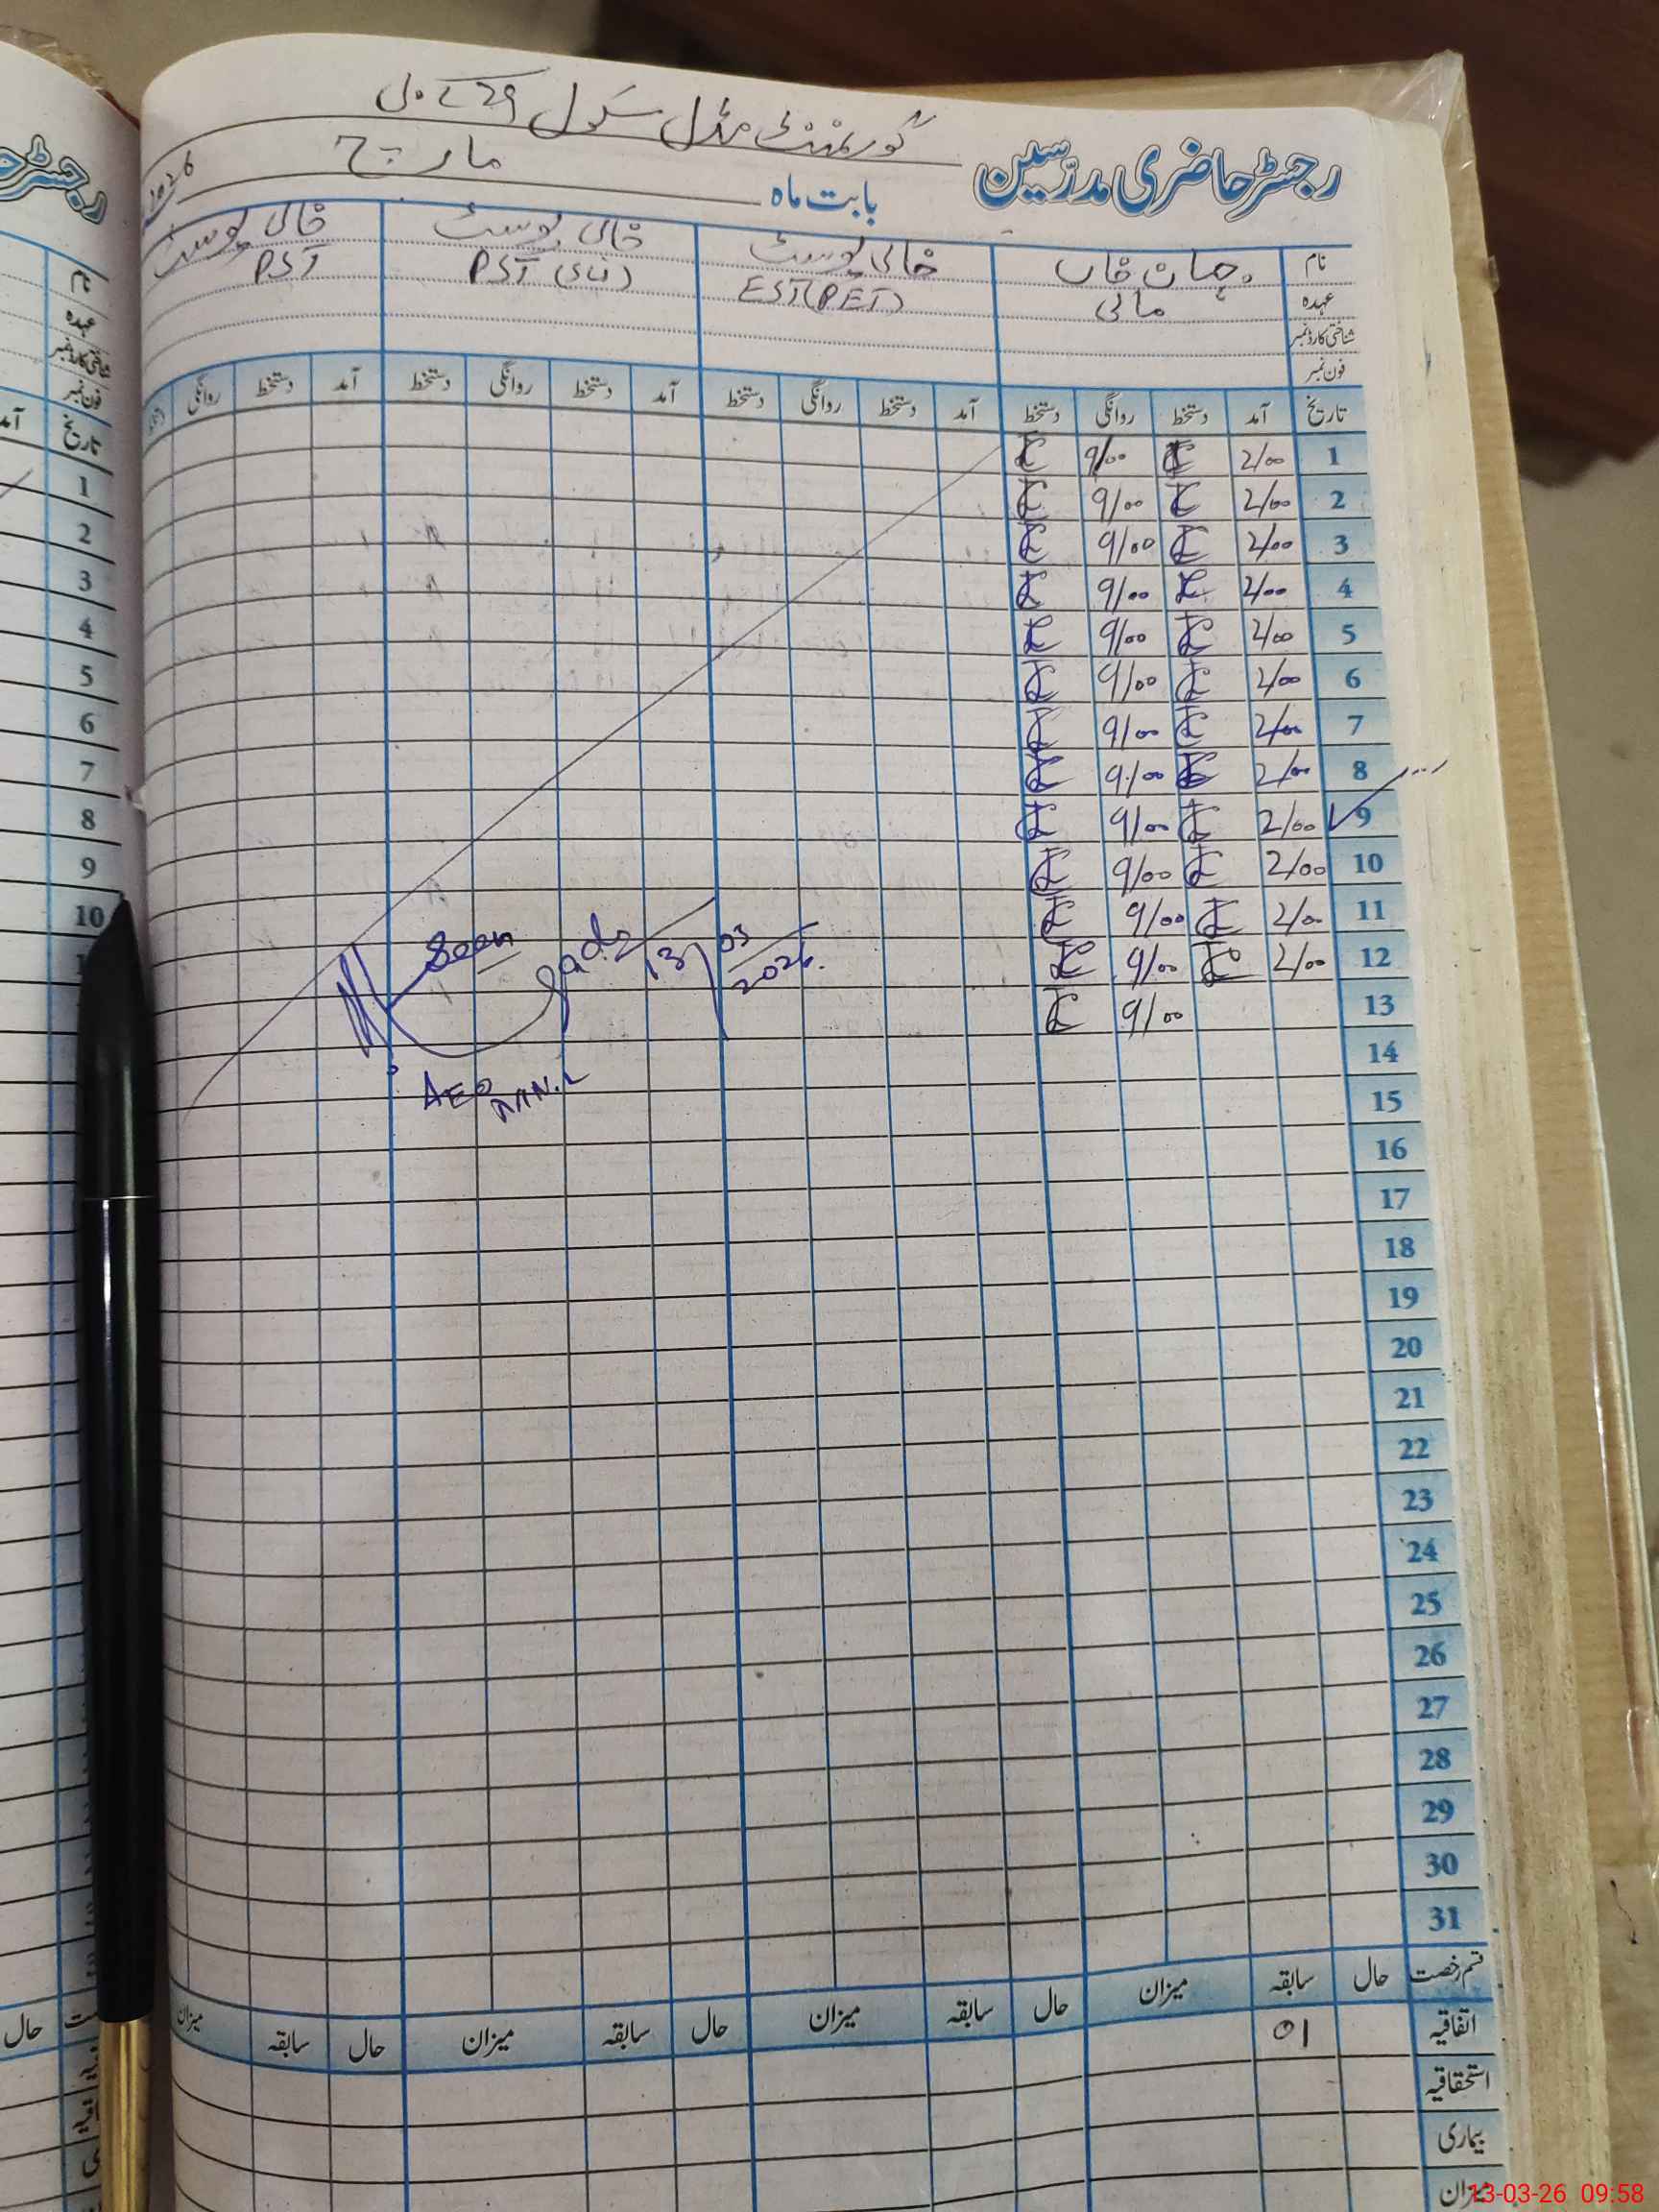 رجسٹر حاضری مدرّسین گورنمنٹ مڈل سکول
بابت ماہ مارچ 2026
نام خالی پوسٹ خالی پوسٹ خالی پوسٹ
عہدہ مالی EST(PET) PST PST
شناختی کارڈ نمبر
فون نمبر
تاریخ آمد دستخط روانگی دستخط آمد دستخط روانگی دستخط آمد دستخط روانگی دستخط آمد دستخط روانگی
1 2/00 9/00
2 2/00 9/00
3 2/00 9/00
4 2/00 9/00
5 2/00 9/00
6 2/00 9/00
7 2/00 9/00
8 2/00 9/00
9 2/00 9/00
10 2/00 9/00
11 2/00 9/00
12 2/00 9/00
13 9/00
Seen
13/03/2026
AEO
14
15
16
17
18
19
20
21
22
23
24
25
26
27
28
29
30
31
قسم رخصت حال سابقہ میزان حال سابقہ میزان حال سابقہ میزان حال سابقہ میزان
اتفاقیہ 01
استحقاقیہ
بیماری
میزان
رجسٹر
نام
عہدہ
شناختی کارڈ نمبر
فون نمبر
تاریخ آمد
1
2
3
4
5
6
7
8
9
10
حال
13-03-26 09:58